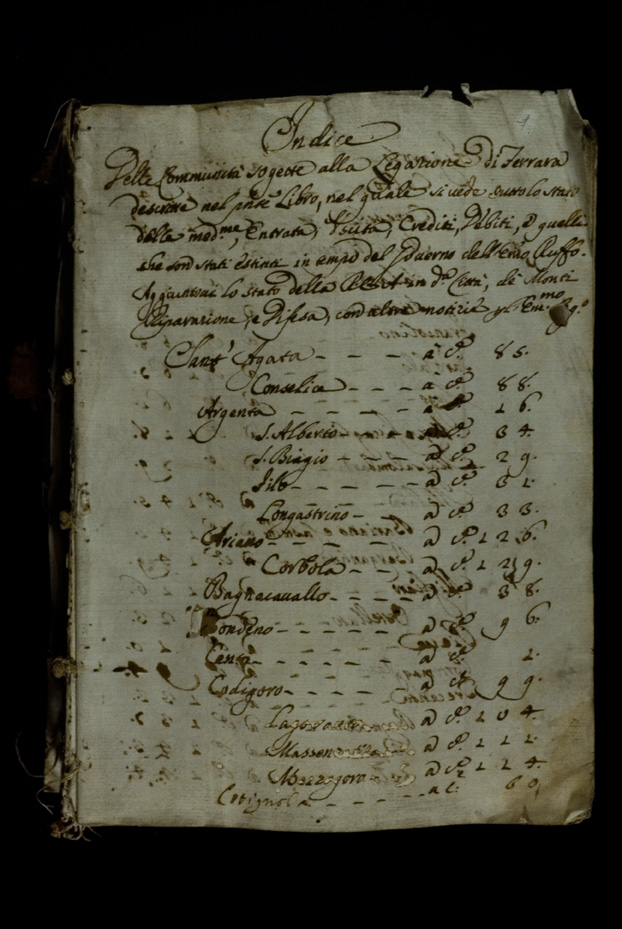 Indice
Delle Communità sogette alla Legatione di Ferrara
descritte nel pñte Libro, nel quale si vede tutto lo stato
delle med.me, Entrata, Vscita, Crediti, Debiti, e quelli
che sono stati estinti in tempo del Governo dell' Emo Ruffo.
lo stato della in d.a Città, de Monti
Riparazione, e Difesa, con altre notizie
Sant' Agata - - - a c.e 85.
Conselice - - - a c.e 88.
Argenta - - - - - a c.e 26.
S. Alberto - - - a c.e 34.
S. Biagio - - - - a c.e 29.
Filo - - - - - a c.e 31.
Longastrino - - - a c.e 33.
Ariano - - - - - a c.e 126.
Corbola - - - - a c.e 129.
Bagnacavallo - - - a c.e 38.
Bondeno - - - - - a c.e 96.
Cento - - - - - a c.e 1.
Codigoro - - - - - a c.e 99.
Lagosanto a c.e 104.
Massen a c.e 111.
Mezzogoro - - a c.e 114.
Cotignola - - - - - a c: 60,